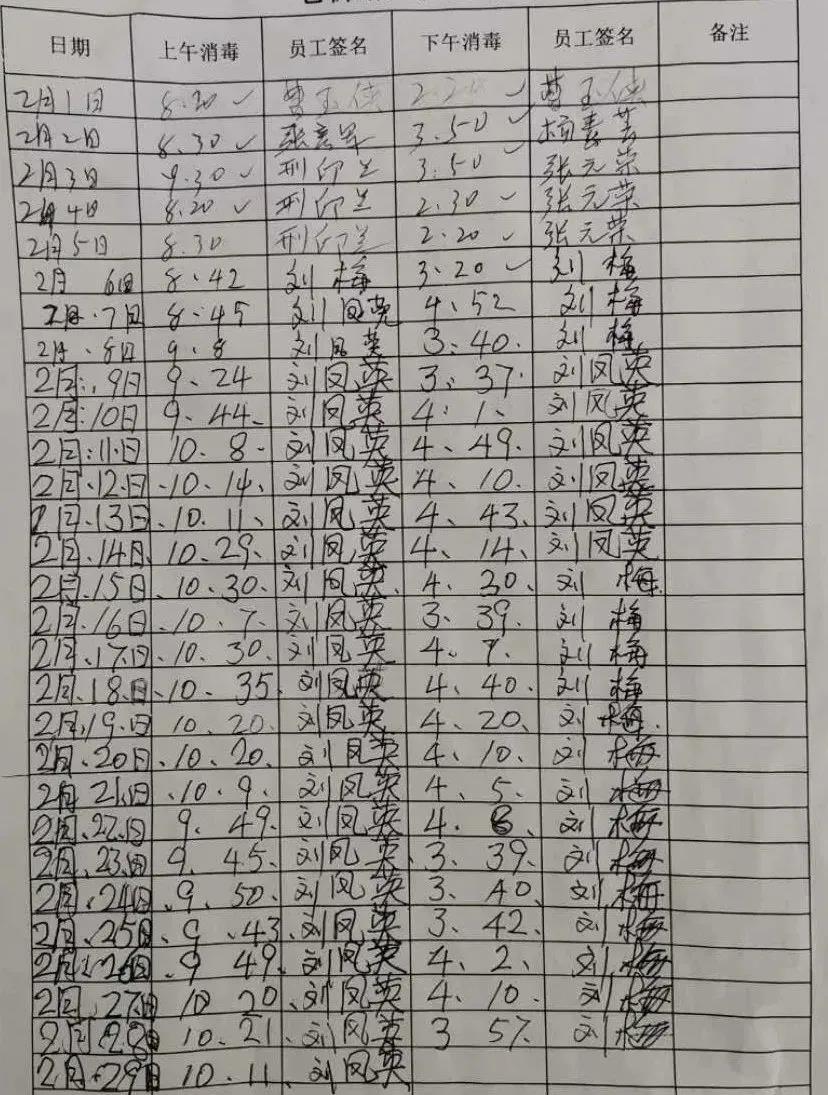 日期 上午消毒 员工签名 下午消毒 员工签名 备注
2月1日 8.20 ✓ 曹玉侠 2.20 ✓ 曹玉侠
2月2日 8.30 ✓ 3.50 ✓
2月3日 9.30 ✓ 刑印兰 3:50 ✓ 张元荣
2月4日 8.20 ✓ 刑印兰 2.30 ✓ 张元荣
2月5日 8.30 刑印兰 2.20 ✓ 张元荣
2月6日 8.42 刘梅 3.20 ✓ 刘梅
2月.7日 8.45 刘凤英 4.52 刘梅
2月.8日 9.8 刘凤英 3.40. 刘梅
2月:.9日 9.24 刘凤英 3.37. 刘凤英
2月:10日 9.44. 刘凤英 4.1、 刘凤英
2月:11.日 10.8. 刘凤英 4、49. 刘凤英
2月.12.日 .10.14、 刘凤英 4.10. 刘凤英
2月.13日 .10.11、 刘凤英 4、43. 刘凤英
2月.14日. 10.29. 刘凤英 4、14、 刘凤英
2月.15日 .10.30. 刘凤英 4.30. 刘梅.
2月.16日 .10.7. 刘凤英 3.39. 刘梅
2月.17.日 .10.30. 刘凤英 4.7. 刘梅
2月.18.日 .10.35 刘凤英 4、40. 刘梅
2月.19.日 10.20. 刘凤英 4.20、 刘梅.
2月.20日 .10.20. 刘凤英 4、10. 刘梅
2月21.日 .10.9. 刘凤英 4、5. 刘梅
2月.22.日 9.49. 刘凤英 4. 刘梅
2月.23.日 9.45. 刘凤英 3、39、 刘梅
2月.24日 、9.50. 刘凤英 3、40、 刘梅
2月、25日 、9.43. 刘凤英 3、42. 刘梅
2月.26日 .9 49. 刘凤英 4、2、 刘梅
2月.27.日 10 20、 刘凤英 4.10. 刘梅
2月28日 10.21. 刘凤英 3 57. 刘梅
2月.29日 10.11、 刘凤英